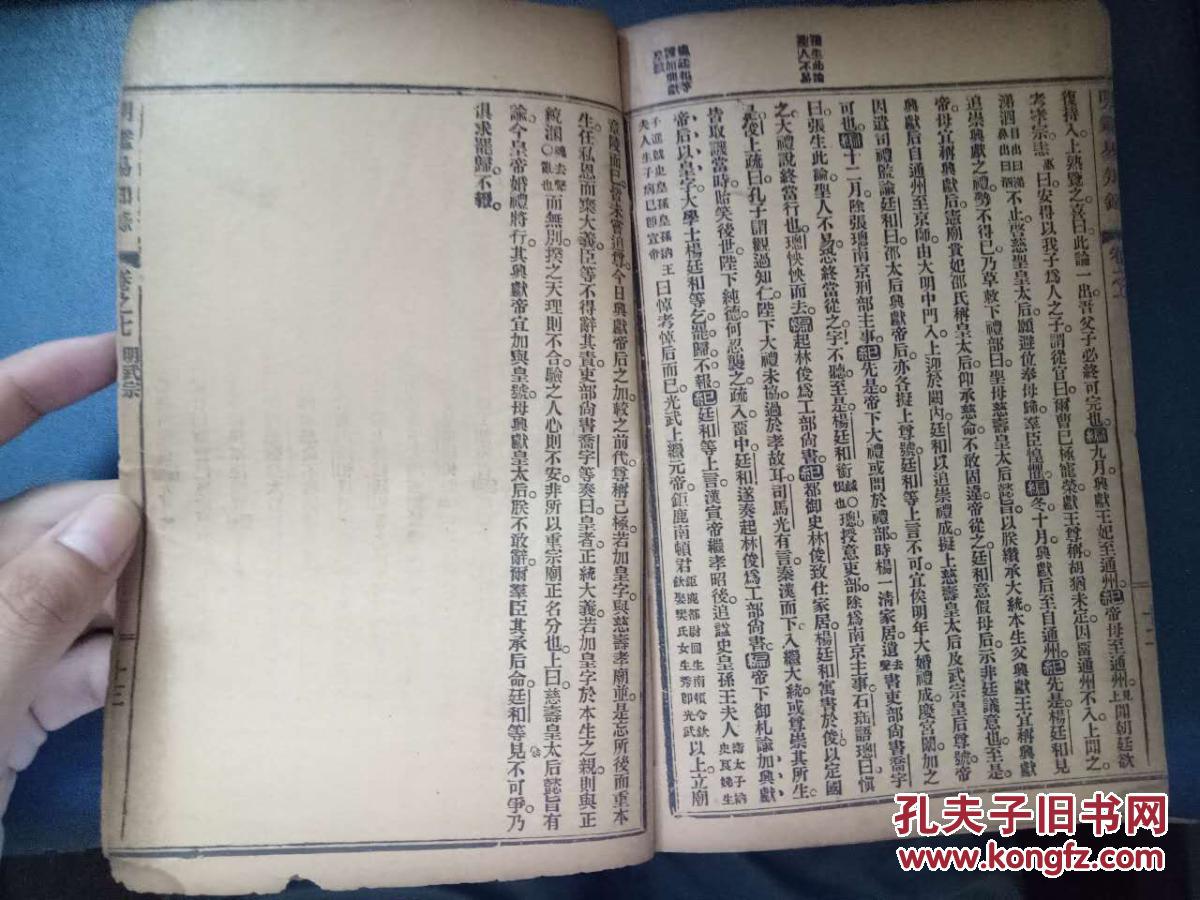 復持入上熟覽之喜曰此論一出吾父子必終可完也。編九月興獻王妃至通州。紀帝母至通州聞朝廷欲
考孝宗恚曰安得以我子爲人之子謂從官曰爾曹已極寵榮獻王尊稱胡猶未定因留通州不入上聞之
涕泗不止啓慈聖皇太后願避位奉母歸羣臣惶懼編冬十月興獻后至自通州紀先是楊廷和見
追崇興獻之禮勢不得已乃草敕下禮部曰聖母慈壽皇太后懿旨以朕纘承大統本生父興獻王宜稱興獻
帝母宜稱興獻后憲廟貴妃邵氏稱皇太后仰承慈命不敢固違帝從之廷和意假母后示非廷議意也至是
興獻后自通州至京師由大明中門入上迎於闕內廷和以追崇禮成擬上慈壽皇太后及武宗皇后尊號帝
因遣司禮監諭廷和曰邵太后興獻帝后亦各擬上尊號廷和等上言不可宜俟明年大婚禮成慶宮闈加之
可也。編十二月除張璁南京刑部主事。紀先是帝下大禮或問於禮部時楊一清家居遺書吏部尚書喬宇
曰張生此論聖人不易恐終當從之宇不聽至是楊廷和銜璁授意吏部除爲南京主事石珤語璁曰愼
之大禮說終當行也璁怏怏而去編起林俊爲工部尚書紀都御史林俊致仕家居楊廷和寓書於俊以定國
是俊上疏曰孔子謂觀過知仁陛下大禮未協過於孝故耳司馬光有言秦漢而下入繼大統或尊崇其所生
皆取譏當時貽笑後世陛下純德何忍襲之疏入留中廷和遂奏起林俊爲工部尚書編帝下御札諭加興獻
帝后以皇字大學士楊廷和等乞罷歸不報紀廷和等上言漢宣帝繼孝昭後追諡史皇孫王夫人
曰悼考悼后而已光武上繼元帝鉅鹿南頓君以上立廟
章陵而已皆未嘗追尊今日興獻帝后之加較之前代尊稱已極若加皇字與慈壽孝廟並是忘所後而重本
生任私恩而棄大義臣等不得辭其責吏部尚書喬宇等奏曰皇者正統大義若加皇字於本生之親則與正
統溷而無別揆之天理則不合驗之人心則不安非所以重宗廟正名分也上曰慈壽皇太后懿旨有
諭今皇帝婚禮將行其興獻帝宜加與皇號母興獻皇太后朕不敢辭爾羣臣其承后命廷和等見不可爭乃
俱求罷歸不報。
卷之七 明武宗
十三
孔夫子旧书网
www.kongfz.com